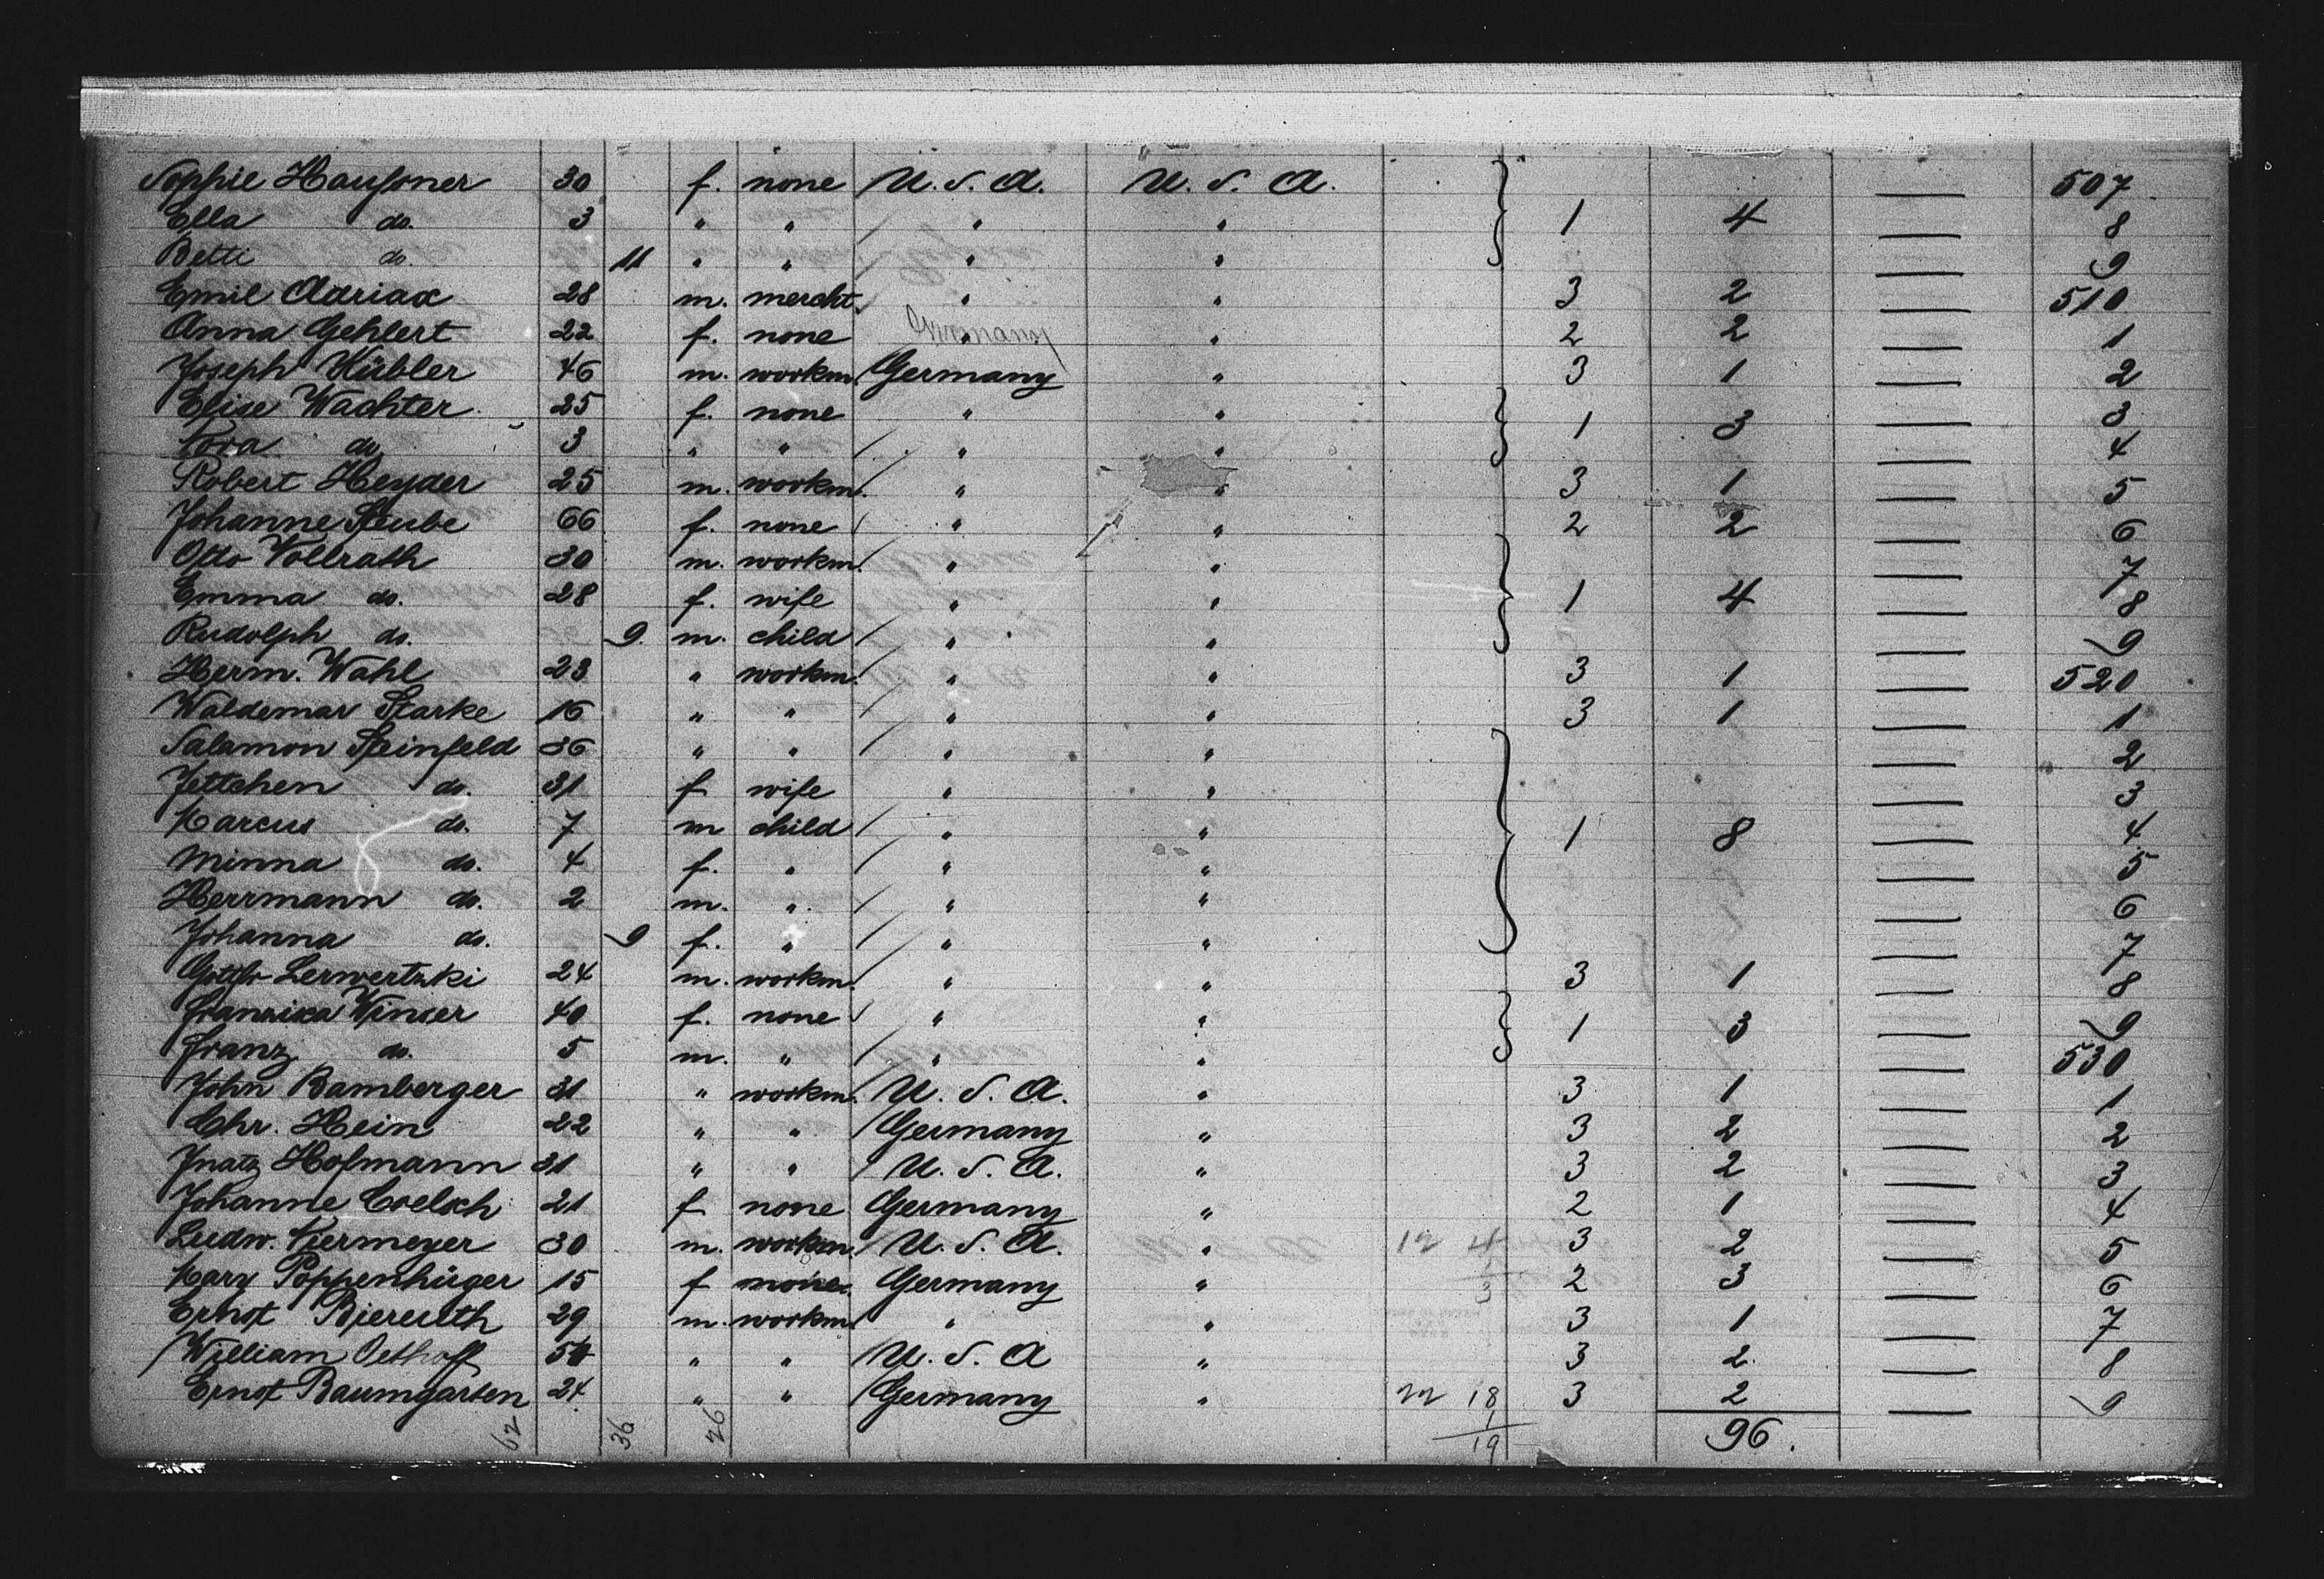 Sophie Haußner 30 f. none U. S. A. U. S. A. — 507
Ella do. 3 " " " " 1 4 — 8
Betti do. 11 " " " " — 9
Emil Adriax 28 m. mercht. " " 3 2 — 510
Anna Gehlert 22 f. none Germany " 2 2 — 1
Joseph Kübler 46 m. workm. Germany " 3 1 — 2
Elise Wachter 25 f. none " " 1 3 — 3
Nora do. 3 " " " " — 4
Robert Heyder 25 m. workm. " " 3 1 — 5
Johanne Steube 66 f. none " " 2 2 — 6
Otto Vollrath 30 m. workm. " " — 7
Emma do. 28 f. wife " " 1 4 — 8
Rudolph do. 9. m. child " " — 9
Herm. Wahl 23 " workm. " " 3 1 — 520
Waldemar Starke 16 " " " " 3 1 — 1
Salamon Steinfeld 36 " " " " — 2
Jettchen do. 31 f wife " " — 3
Marcus do. 7 m child " " 1 8 — 4
Minna do. 4 f. " " " — 5
Herrmann do. 2 m. " " " — 6
Johanna do. 9 f. " " " — 7
Gottlb Lerwertzki 24 m. workm. " " 3 1 — 8
Franzika Winter 40 f. none " " 1 3 — 9
Franz do. 5 m. " " " — 530
John Bamberger 31 " workm. U. S. A. " 3 1 — 1
Chr. Hein 22 " " Germany " 3 2 — 2
Jnatz Hofmann 31 " " U. S. A. " 3 2 — 3
Johanne Coelsch 21 f none Germany " 2 1 — 4
Ludw. Kiermeyer 30 m. workm. U. S. A. " 12 4 3 2 — 5
Mary Poppenhüger 15 f none. Germany " 3 2 3 — 6
Ernst Biereuth 29 m. workm. " " 3 1 — 7
William Oelthoff 54 " " U. S. A " 3 2. — 8
Ernst Baumgarten 24 " " Germany " 22 18 3 2 — 9
62 36 26 1 19 96.